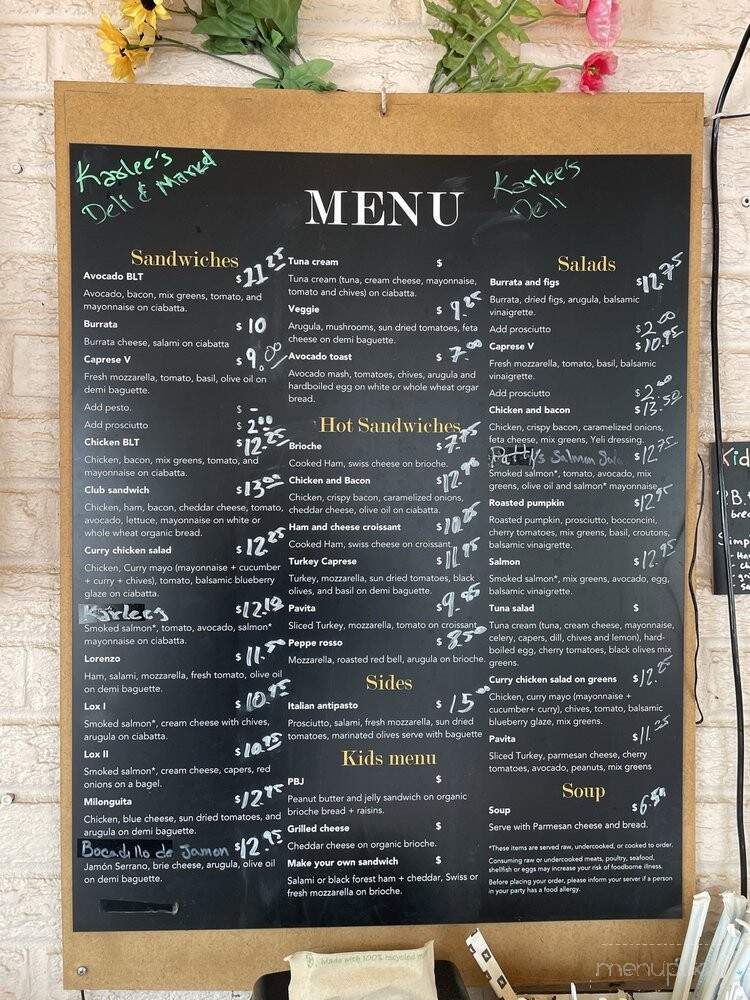 Karlee's
Deli & Market
Karlee's
Deli
MENU
Sandwiches
Avocado BLT $
Avocado, bacon, mix greens, tomato, and
mayonnaise on ciabatta.
Burrata $ 10
Burrata cheese, salami on ciabatta
Caprese V $ 9.00
Fresh mozzarella, tomato, basil, olive oil on
demi baguette.
Add pesto. $ -
Add prosciutto $ 2.00
Chicken BLT $ 12.25
Chicken, bacon, mix greens, tomato, and
mayonnaise on ciabatta.
Club sandwich $ 13.00
Chicken, ham, bacon, cheddar cheese, tomato,
avocado, lettuce, mayonnaise on white or
whole wheat organic bread.
Curry chicken salad $ 12.25
Chicken, Curry mayo (mayonnaise + cucumber
+ curry + chives), tomato, balsamic blueberry
glaze on ciabatta.
Karlees $
Smoked salmon*, tomato, avocado, salmon*
mayonnaise on ciabatta.
Lorenzo $ 11.50
Ham, salami, mozzarella, fresh tomato, olive oil
on demi baguette.
Lox I $ 10.95
Smoked salmon*, cream cheese with chives,
arugula on ciabatta.
Lox II $ 10.95
Smoked salmon*, cream cheese, capers, red
onions on a bagel.
Milonguita $ 12.95
Chicken, blue cheese, sun dried tomatoes, and
arugula on demi baguette.
Bocadillo de Jamon $12.95
Jamón Serrano, brie cheese, arugula, olive oil
on demi baguette.
Tuna cream $
Tuna cream (tuna, cream cheese, mayonnaise,
tomato and chives) on ciabatta.
Veggie $ 9.25
Arugula, mushrooms, sun dried tomatoes, feta
cheese on demi baguette.
Avocado toast $ 7.00
Avocado mash, tomatoes, chives, arugula and
hardboiled egg on white or whole wheat orgar
bread.
Hot Sandwiches
Brioche $ 7.75
Cooked Ham, swiss cheese on brioche.
Chicken and Bacon $
Chicken, crispy bacon, caramelized onions,
cheddar cheese, olive oil on ciabatta.
Ham and cheese croissant $
Cooked Ham, swiss cheese on croissant
Turkey Caprese $ 11.95
Turkey, mozzarella, sun dried tomatoes, black
olives, and basil on demi baguette.
Pavita $ 9.85
Sliced Turkey, mozzarella, tomato on croissant
Peppe rosso $ 8.50
Mozzarella, roasted red bell, arugula on brioche.
Sides
Italian antipasto $ 15.00
Prosciutto, salami, fresh mozzarella, sun dried
tomatoes, marinated olives serve with baguette
Kids menu
PBJ $
Peanut butter and jelly sandwich on organic
brioche bread + raisins.
Grilled cheese $
Cheddar cheese on organic brioche.
Make your own sandwich $
Salami or black forest ham + cheddar, Swiss or
fresh mozzarella on brioche.
Salads
Burrata and figs $ 12.75
Burrata, dried figs, arugula, balsamic
vinaigrette.
Add prosciutto $ 2.00
Caprese V $ 10.95
Fresh mozzarella, tomato, basil, balsamic
vinaigrette.
Add prosciutto $ 2.00
Chicken and bacon $ 13.50
Chicken, crispy bacon, caramelized onions,
feta cheese, mix greens, Yeli dressing.
Patty's Salmon $ 12.75
Smoked salmon*, tomato, avocado, mix
greens, olive oil and salmon* mayonnaise
Roasted pumpkin $ 12.95
Roasted pumpkin, prosciutto, bocconcini,
cherry tomatoes, mix greens, basil, croutons,
balsamic vinaigrette.
Salmon $ 12.95
Smoked salmon*, mix greens, avocado, egg,
balsamic vinaigrette.
Tuna salad $
Tuna cream (tuna, cream cheese, mayonnaise,
celery, capers, dill, chives and lemon), hard-
boiled egg, cherry tomatoes, black olives mix
greens.
Curry chicken salad on greens $
Chicken, curry mayo (mayonnaise +
cucumber+ curry), chives, tomato, balsamic
blueberry glaze, mix greens.
Pavita $
Sliced Turkey, parmesan cheese, cherry
tomatoes, avocado, peanuts, mix greens
Soup
Soup $ 6.50
Serve with Parmesan cheese and bread.
*These items are served raw, undercooked, or cooked to order.
Consuming raw or undercooked meats, poultry, seafood,
shellfish or eggs may increase your risk of foodborne illness.
Before placing your order, please inform your server if a person
in your party has a food allergy.
Kid
P.B.
brea
Simp
Made with 100% recycled